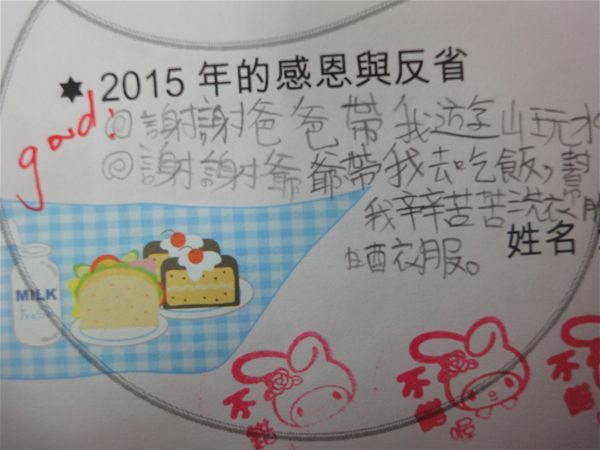 2015 年的感恩與反省
good!
◎謝謝爸爸帶我遊山玩水
◎謝謝爺爺帶我去吃飯,幫
我辛辛苦苦洗衣服
晒衣服。
姓名
MILK
不錯
不錯喔
不錯